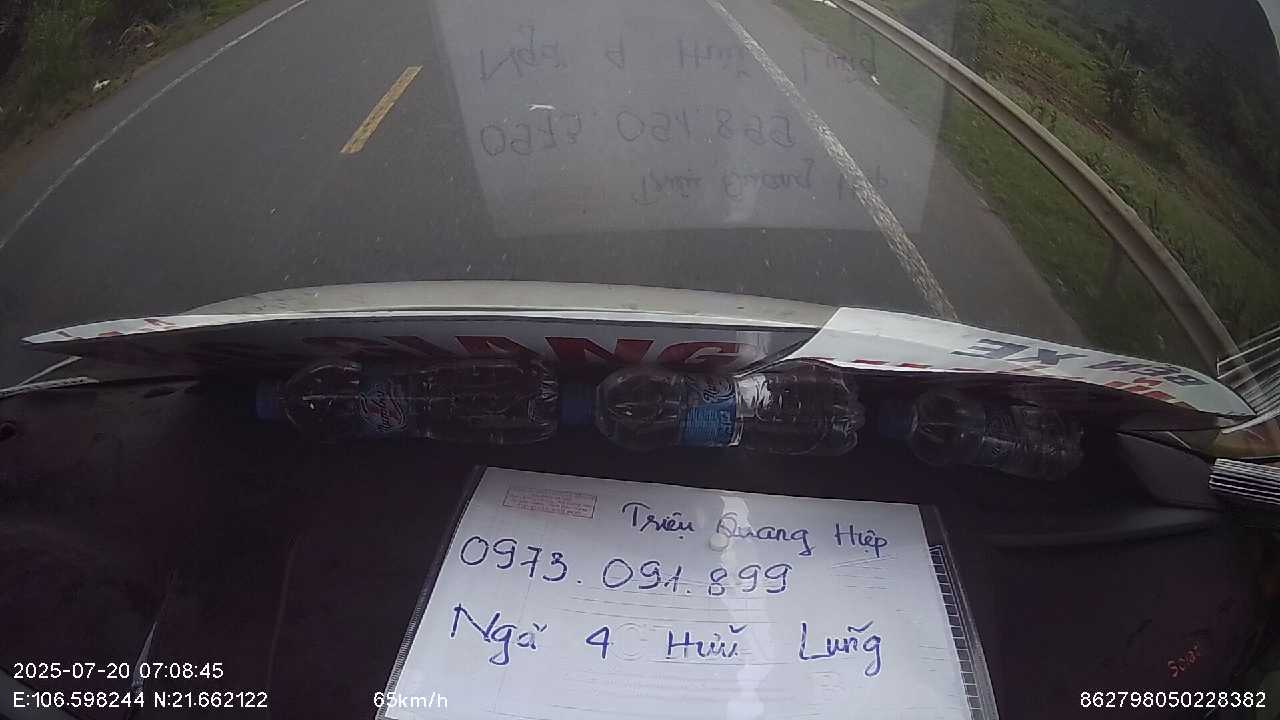 GIANG
BẾN XE
Triệu Quang Hiệp
0973.091.899
Ngã 4 Hữu Lũng
2025-07-20 07:08:45
E:106.598244 N:21.662122
65km/h
862798050228382